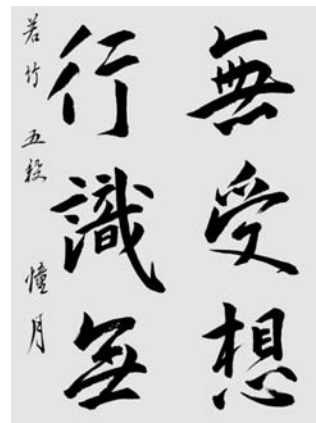 無受想
行識無
若竹 五段 憧月